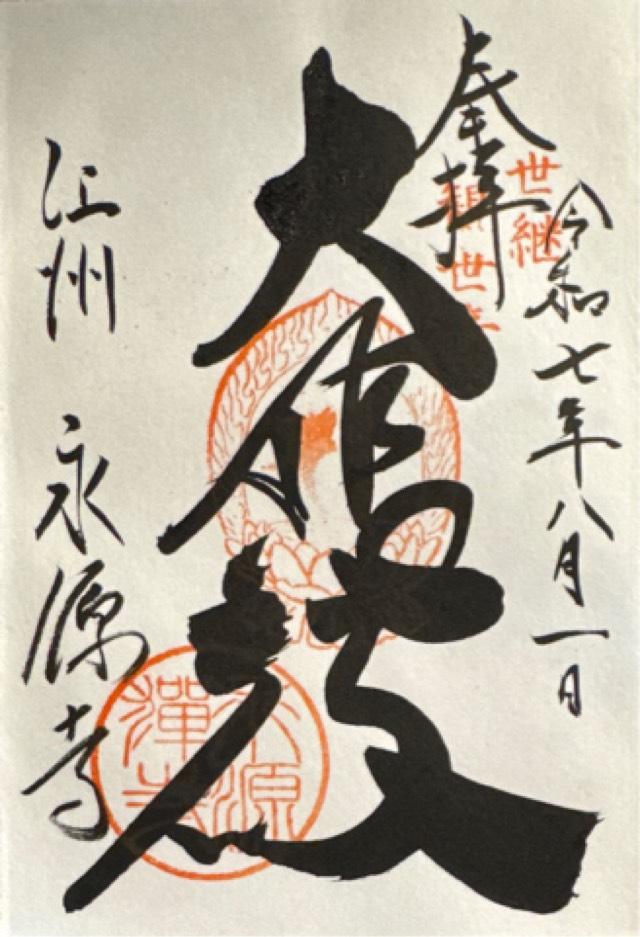 令和七年八月一日
世継
觀世音
奉拝
大悲殿
永源
禪寺
江州 永源寺